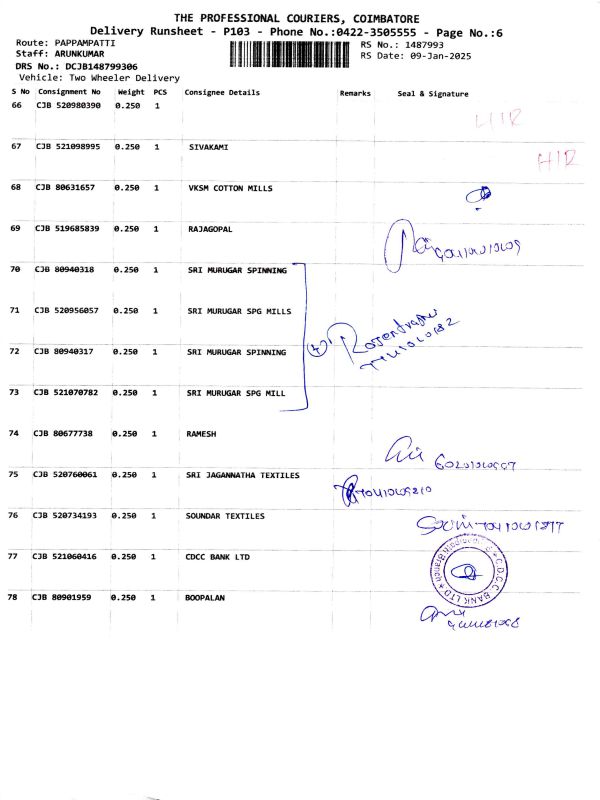 THE PROFESSIONAL COURIERS, COIMBATORE
Delivery Runsheet - P103 - Phone No.:0422-3505555 - Page No.:6
Route: PAPPAMPATTI RS No.: 1487993
Staff: ARUNKUMAR RS Date: 09-Jan-2025
DRS No.: DCJB148799306
Vehicle: Two Wheeler Delivery
S No Consignment No Weight PCS Consignee Details Remarks Seal & Signature
66 CJB 520980390 0.250 1
67 CJB 521098995 0.250 1 SIVAKAMI
68 CJB 80631657 0.250 1 VKSM COTTON MILLS
69 CJB 519685839 0.250 1 RAJAGOPAL
70 CJB 80940318 0.250 1 SRI MURUGAR SPINNING
71 CJB 520956057 0.250 1 SRI MURUGAR SPG MILLS
72 CJB 80940317 0.250 1 SRI MURUGAR SPINNING
73 CJB 521070782 0.250 1 SRI MURUGAR SPG MILL
74 CJB 80677738 0.250 1 RAMESH
75 CJB 520760061 0.250 1 SRI JAGANNATHA TEXTILES
76 CJB 520734193 0.250 1 SOUNDAR TEXTILES
77 CJB 521060416 0.250 1 CDCC BANK LTD
C.D.C.C. BANK LTD
78 CJB 80901959 0.250 1 BOOPALAN